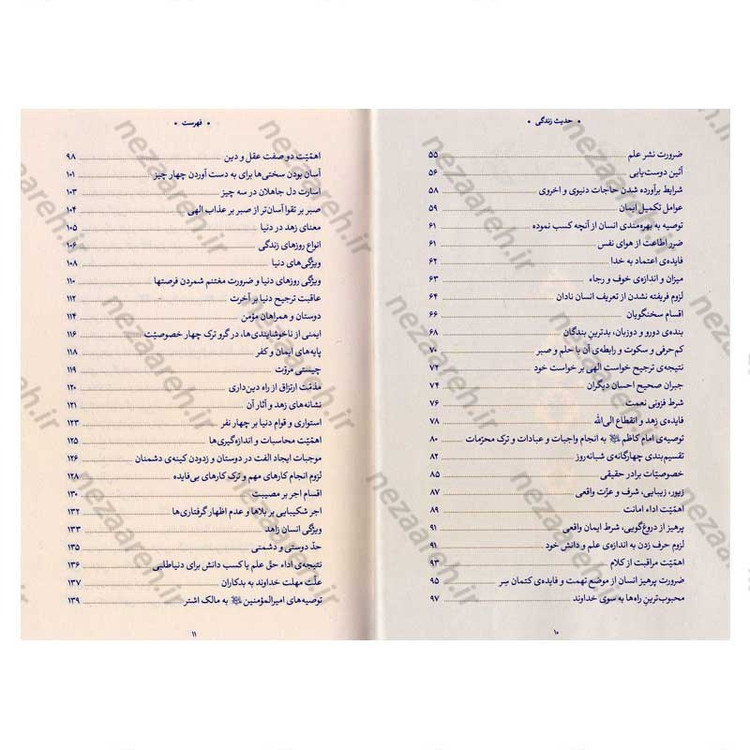 حدیث زندگی
ضرورت نشر علم ۵۵
آئین دوست‌یابی ۵۶
شرایط برآورده شدن حاجات دنیوی و اخروی ۵۸
عوامل تکمیل ایمان ۵۹
توصیه به بهره‌مندی انسان از آنچه کسب نموده ۶۱
ضرر اطاعت از هوای نفس ۶۱
فایده‌ی اعتماد به خدا ۶۲
میزان و اندازه‌ی خوف و رجاء ۶۳
لزوم فریفته نشدن از تعریف انسان نادان ۶۴
اقسام سخنگویان ۶۶
بنده‌ی دورو و دوزبان، بدترین بندگان ۶۸
کم‌حرفی و سکوت و رابطه‌ی آن با حلم و صبر ۷۰
نتیجه‌ی ترجیح خواست الهی بر خواست خود ۷۲
جبران صحیح احسان دیگران ۷۴
شرط فزونی نعمت ۷۶
فایده‌ی زهد و انقطاع الی‌الله ۷۸
توصیه‌ی امام کاظم به انجام واجبات و عبادات و ترک محرّمات ۸۰
تقسیم‌بندی چهارگانه‌ی شبانه‌روز ۸۲
خصوصیّات برادر حقیقی ۸۵
زیور، زیبایی، شرف و عزّت واقعی ۸۷
اهمّیّت اداء امانت ۸۹
پرهیز از دروغ‌گویی، شرط ایمان واقعی ۹۱
لزوم حرف زدن به اندازه‌ی علم و دانش خود ۹۱
اهمّیّت مراقبت از کلام ۹۳
ضرورت پرهیز انسان از موضع تهمت و فایده‌ی کتمان سِر ۹۵
محبوب‌ترین راه‌ها به سوی خداوند ۹۷
۱۰
فهرست
اهمّیّت دو صفت عقل و دین ۹۸
آسان بودن سختی‌ها برای به دست آوردن چهار چیز ۱۰۱
اسارت دل جاهلان در سه چیز ۱۰۳
صبر بر تقوا آسان‌تر از صبر بر عذاب الهی ۱۰۴
معنای زهد در دنیا ۱۰۵
انواع روزهای زندگی ۱۰۶
ویژگی‌های دنیا ۱۰۸
ویژگی روزهای دنیا و ضرورت مغتنم شمردن فرصتها ۱۱۰
عاقبت ترجیح دنیا بر آخرت ۱۱۲
دوستان و همراهان مؤمن ۱۱۴
ایمنی از ناخوشایندی‌ها، در گرو ترک چهار خصوصیّت ۱۱۶
پایه‌های ایمان و کفر ۱۱۸
چیستی مروّت ۱۱۹
مذمّت ارتزاق از راه دین‌داری ۱۲۰
نشانه‌های زهد و آثار آن ۱۲۱
استواری و قوام دنیا بر چهار نفر ۱۲۳
اهمّیّت محاسبات و اندازه‌گیری‌ها ۱۲۵
موجبات ایجاد الفت در دوستان و زدودن کینه‌ی دشمنان ۱۲۶
لزوم انجام کارهای مهم و ترک کارهای بی‌فایده ۱۲۸
اقسام اجر بر مصیبت ۱۳۰
اجر شکیبایی بر بلاها و عدم اظهار گرفتاری‌ها ۱۳۲
ویژگی انسان زاهد ۱۳۳
حدّ دوستی و دشمنی ۱۳۵
نتیجه‌ی اداء حقّ علم یا کسب دانش برای دنیاطلبی ۱۳۶
علّت مهلت خداوند به بدکاران ۱۳۷
توصیه‌های امیرالمؤمنین به مالک اشتر ۱۳۹
۱۱
nezaareh.ir